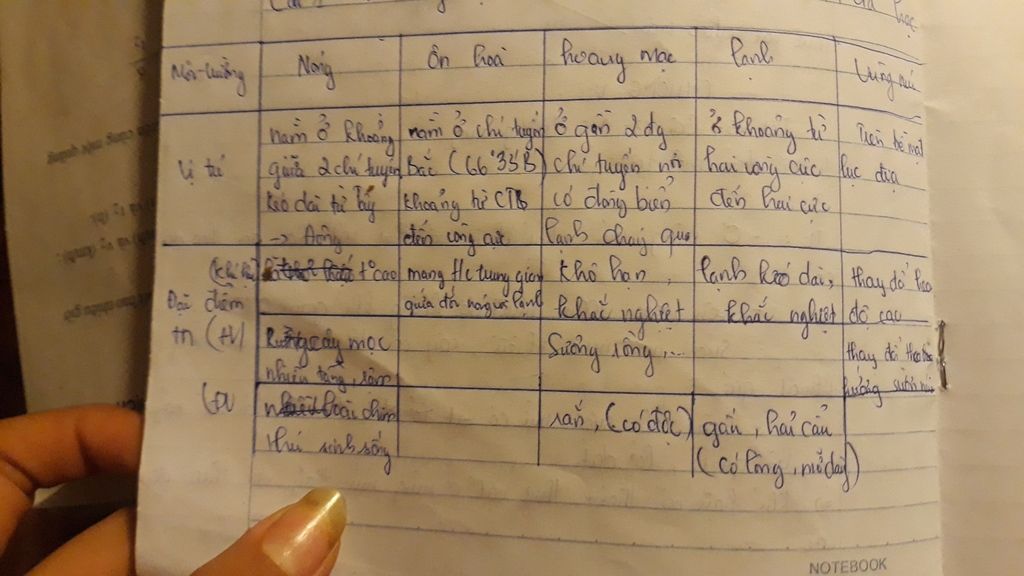 Môi trường Nóng Ôn hoà hoang mạc lạnh Vùng núi
Vị trí
nằm ở khoảng
giữa 2 chí tuyến
kéo dài từ Tây
-> Đông
nằm ở chí tuyến
bắc (66°33'B)
khoảng từ CTB
đến vòng cực
ở gần 2 đg
chí tuyến nơi
có dòng biển
lạnh chảy qua
ở khoảng từ
hai vòng cực
đến hai cực
trên bề mặt
lục địa
Đặc điểm
tn
(khí hậu)
t° cao
mang t/c trung gian
giữa đới nóng và lạnh
khô hạn,
khắc nghiệt
lạnh kéo dài,
khắc nghiệt
thay đổi theo
độ cao
(TV)
Rừng cây mọc
nhiều tầng, rậm
Xương rồng,...
thay đổi theo
hướng sườn núi
(ĐV
loài chim
thú sinh sống
rắn, (có độc)
gấu, hải cẩu
(có lông, mỡ dày)
NOTEBOOK